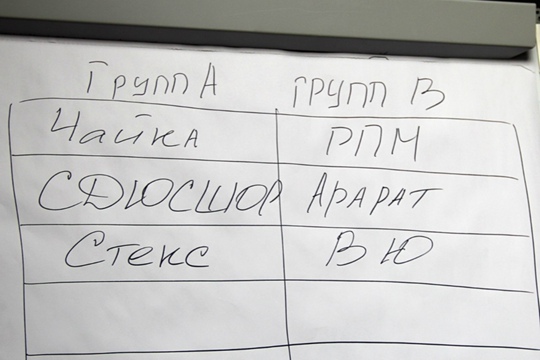 Групп А групп В
Чайка РПМ
СДЮСШОР Арарат
Стекс ВЮ